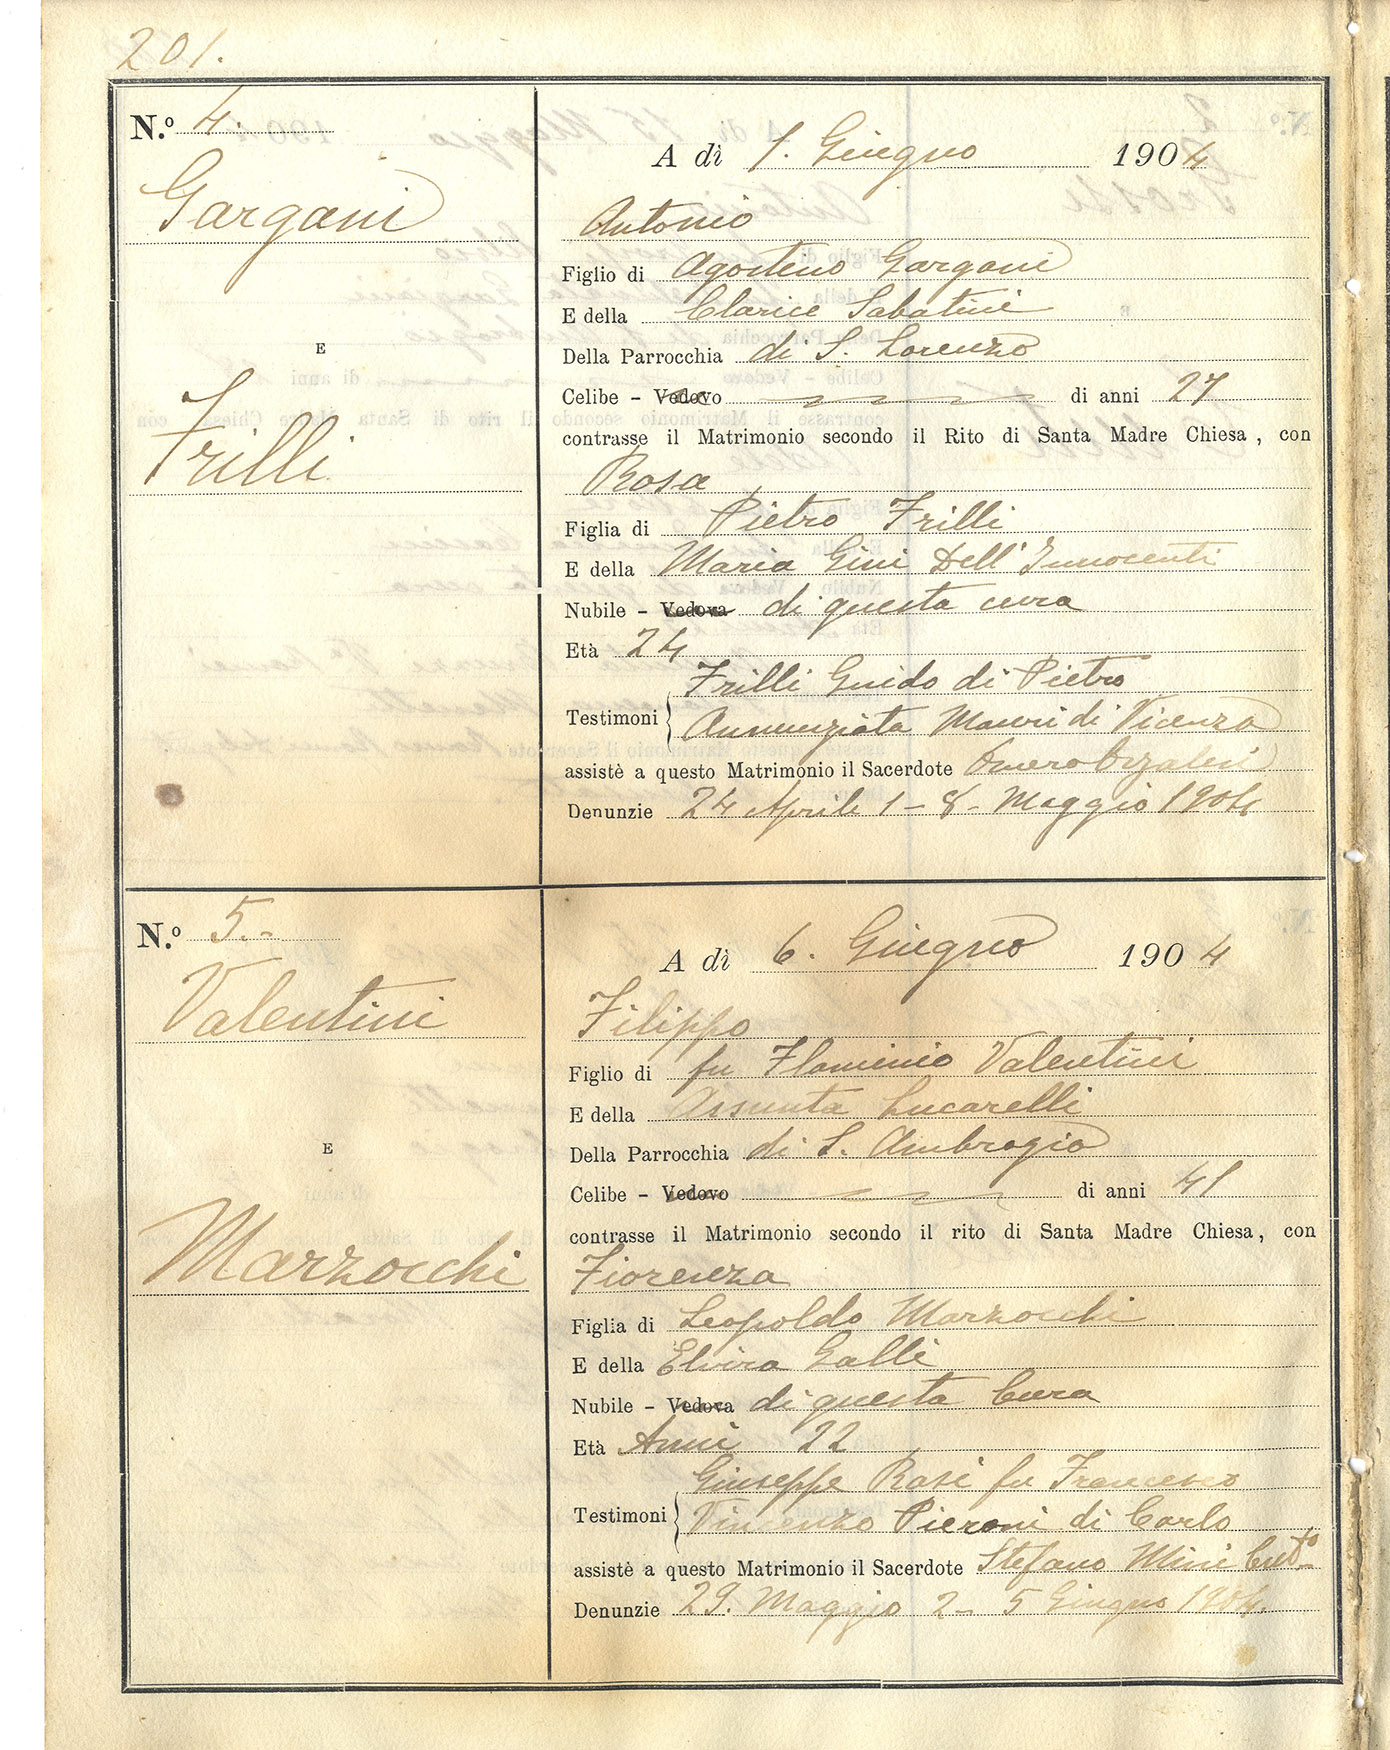 201.
N.º 4
Gargani
E
Frilli
A dì 1. Giugno 1904
Antonio
Figlio di Agostino Gargani
E della Clarice Sabatini
Della Parrocchia di S. Lorenzo
Celibe - Vedovo di anni 27
contrasse il Matrimonio secondo il Rito di Santa Madre Chiesa, con
Rosa
Figlia di Pietro Frilli
E della Maria Gini Dell'Innocenti
Nubile - Vedova di questa cura
Età 24
Frilli Guido di Pietro
Testimoni
Annunziata Mauri di Vicenzo
assistè a questo Matrimonio il Sacerdote Omero Orzalesi
Denunzie 24 Aprile 1 - 8 - Maggio 1904
N.º 5.-
Valentini
E
Marzocchi
A dì 6. Giugno 1904
Filippo
Figlio di fu Flaminio Valentini
E della Assunta Lucarelli
Della Parrocchia di S. Ambrogio
Celibe - Vedovo di anni 41
contrasse il Matrimonio secondo il rito di Santa Madre Chiesa, con
Fiorenza
Figlia di Leopoldo Marzocchi
E della Elvira Galli
Nubile - Vedova di questa Cura
Età Anni 22
Giuseppe Rasi fu Francesco
Testimoni
Vincenzo Pieroni di Carlo
assistè a questo Matrimonio il Sacerdote Stefano Mini
Denunzie 29. Maggio 2 - 5 Giugno 1904.